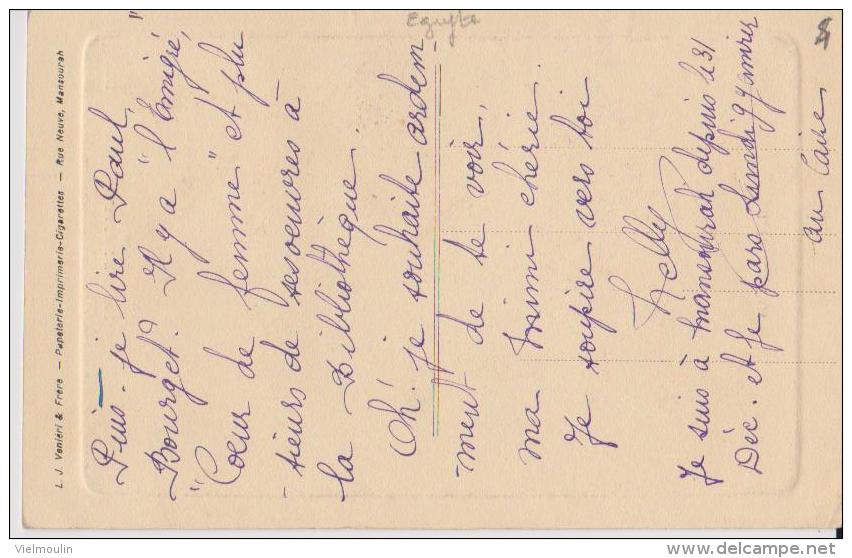 Egypte
L. J. Veniéri & Frère — Papeterie-Imprimerie-Cigarettes — Rue Neuve, Mansourah
Puis-je lire Paul
Bourget? Il y a "l'Emigré,"
"Coeur de femme" et plu
-sieurs de ses oeuvres à
la Bibliothèque.
Oh! je souhaite ardem-
-ment de te voir,
ma Mimi chérie.
Je soupire vers toi
Nelly
Je suis à Mansourah depuis le 31
Déc. et je pars Lundi 9 Janvier
au Caire
Vielmoulin
delcampe.net